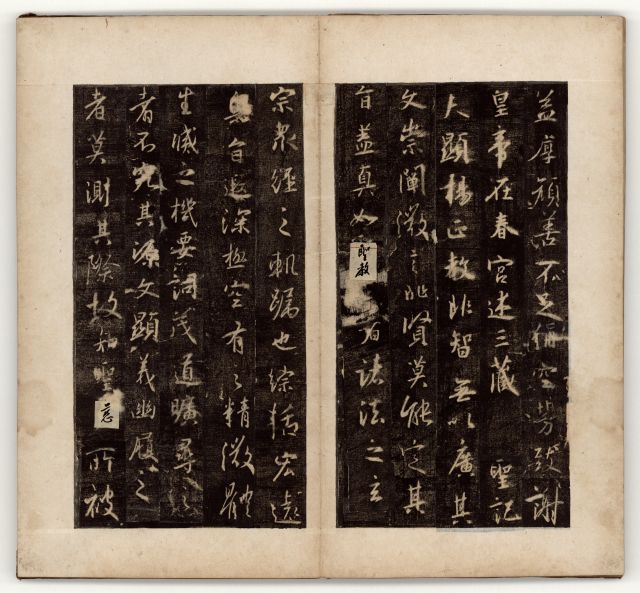 益厚顏善不足稱空勞致謝
皇帝在春宮述三藏 聖記
夫顯揚正教非智無以廣其
文崇闡微言非賢莫能定其
旨蓋真如聖教者諸法之玄
宗眾經之軌躅也綜括宏遠
奧旨遐深極空有之精微體
生滅之機要詞茂道曠尋之
者不究其源文顯義幽履之
者莫測其際故知聖慈所被